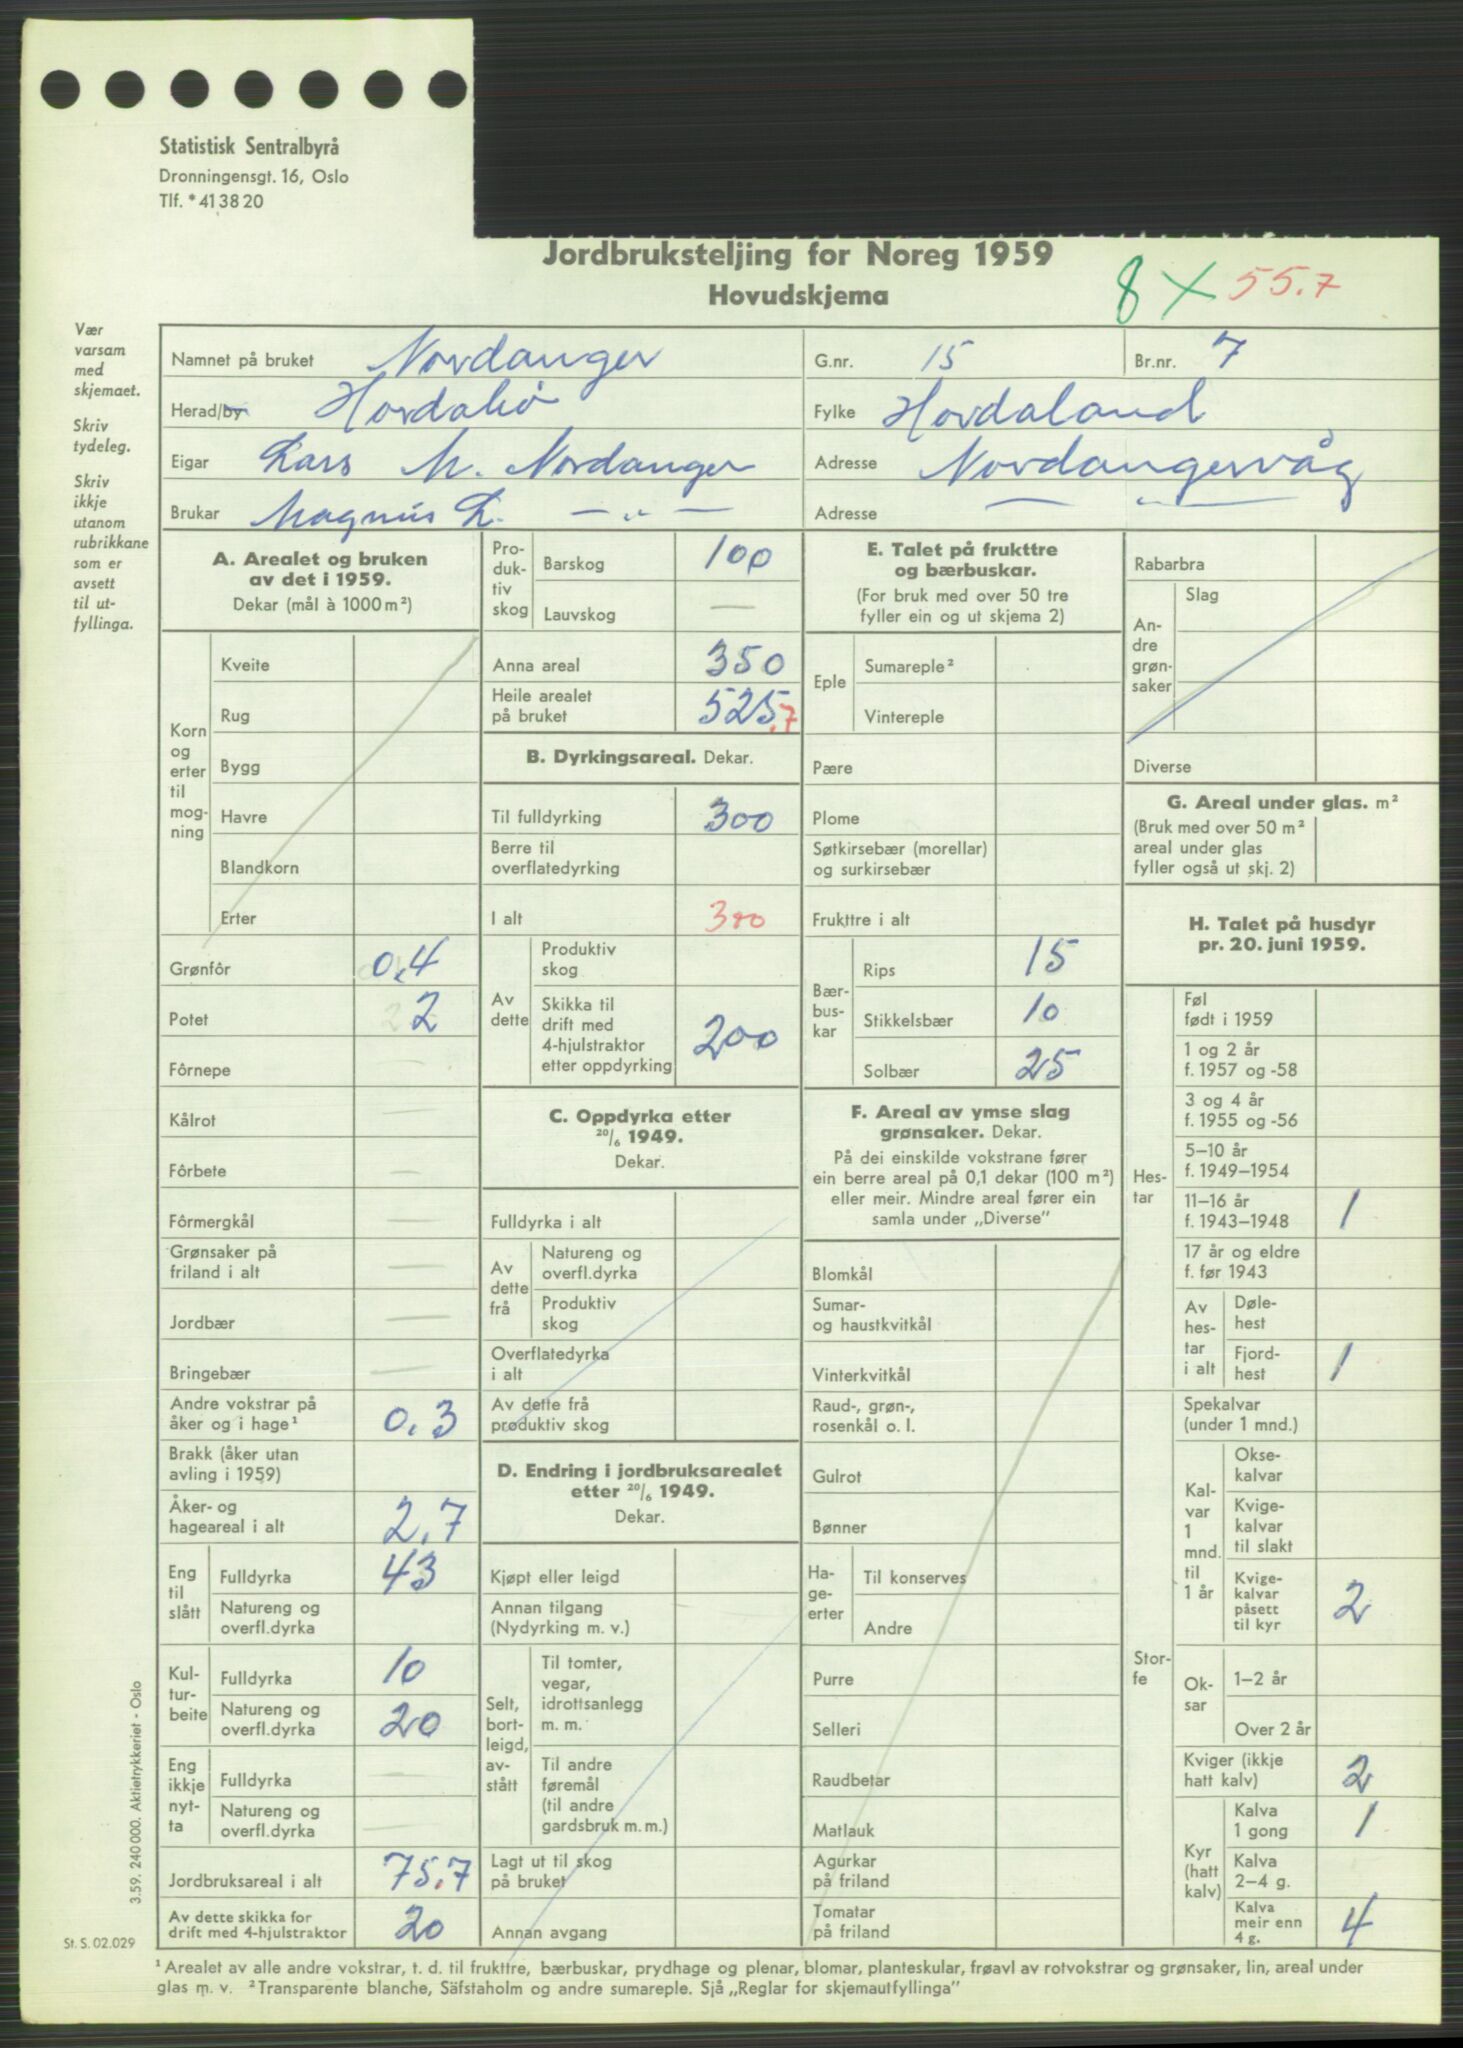 Statistisk Sentralbyrå
Dronningensgt. 16, Oslo
Tlf. *41 38 20
Jordbruksteljing for Noreg 1959
Hovudskjema
8 X 55.7
Vær
varsam
med
skjemaet.
Skriv
tydeleg.
Skriv
ikkje
utanom
rubrikkane
som er
avsett
til ut-
fyllinga.
Namnet på bruket Nordanger G.nr. 15 Br.nr. 7
Herad/by Hordabø Fylke Hordaland
Eigar Lars M. Nordanger Adresse Nordangervåg
Brukar Magnus L. — „ — Adresse — „ —
A. Arealet og bruken
av det i 1959.
Dekar (mål à 1000 m²)
Korn
og
erter
til
mog-
ning
Kveite
Rug
Bygg
Havre
Blandkorn
Erter
Grønfôr 0,4
Potet 2
Fôrnepe —
Kålrot —
Fôrbete —
Fôrmergkål —
Grønsaker på
friland i alt —
Jordbær —
Bringebær —
Andre vokstrar på
åker og i hage¹ 0,3
Brakk (åker utan
avling i 1959)
Åker- og
hageareal i alt 2,7
Eng
til
slått
Fulldyrka 43
Natureng og
overfl.dyrka
Kul-
tur-
beite
Fulldyrka 10
Natureng og
overfl.dyrka 20
Eng
ikkje
nyt-
ta
Fulldyrka —
Natureng og
overfl.dyrka —
Jordbruksareal i alt 75,7
Av dette skikka for
drift med 4-hjulstraktor 20
Pro-
duk-
tiv
skog
Barskog 100
Lauvskog —
Anna areal 350
Heile arealet
på bruket 525,7
B. Dyrkingsareal. Dekar.
Til fulldyrking 300
Berre til
overflatedyrking
I alt 300
Av
dette
Produktiv
skog
Skikka til
drift med
4-hjulstraktor
etter oppdyrking 200
C. Oppdyrka etter
20/6 1949.
Dekar.
Fulldyrka i alt
Av
dette
frå
Natureng og
overfl.dyrka
Produktiv
skog
Overflatedyrka
i alt
Av dette frå
produktiv skog
D. Endring i jordbruksarealet
etter 20/6 1949.
Dekar.
Kjøpt eller leigd
Annan tilgang
(Nydyrking m. v.)
Selt,
bort-
leigd,
av-
stått
Til tomter,
vegar,
idrottsanlegg
m. m.
Til andre
føremål
(til andre
gardsbruk m. m.)
Lagt ut til skog
på bruket
Annan avgang
E. Talet på frukttre
og bærbuskar.
(For bruk med over 50 tre
fyller ein og ut skjema 2)
Eple
Sumareple²
Vintereple
Pære
Plome
Søtkirsebær (morellar)
og surkirsebær
Frukttre i alt
Bær-
bus-
kar
Rips 15
Stikkelsbær 10
Solbær 25
F. Areal av ymse slag
grønsaker. Dekar.
På dei einskilde vokstrane fører
ein berre areal på 0,1 dekar (100 m²)
eller meir. Mindre areal fører ein
samla under „Diverse”
Blomkål
Sumar-
og haustkvitkål
Vinterkvitkål
Raud-, grøn-,
rosenkål o. l.
Gulrot
Bønner
Ha-
ge-
erter
Til konserves
Andre
Purre
Selleri
Raudbetar
Matlauk
Agurkar
på friland
Tomatar
på friland
Rabarbra
An-
dre
grøn-
saker
Slag
Diverse
G. Areal under glas. m²
(Bruk med over 50 m²
areal under glas
fyller også ut skj. 2)
H. Talet på husdyr
pr. 20. juni 1959.
Hes-
tar
Føl
født i 1959
1 og 2 år
f. 1957 og -58
3 og 4 år
f. 1955 og -56
5–10 år
f. 1949–1954
11–16 år
f. 1943–1948 1
17 år og eldre
f. før 1943
Av
hes-
tar
i alt
Døle-
hest
Fjord-
hest 1
Stor-
fe
Spekalvar
(under 1 mnd.)
Kal-
var
1
mnd.
til
1 år
Okse-
kalvar
Kvige-
kalvar
til slakt
Kvige-
kalvar
påsett
til kyr 2
Ok-
sar
1–2 år
Over 2 år
Kviger (ikkje
hatt kalv) 2
Kyr
(hatt
kalv)
Kalva
1 gong 1
Kalva
2–4 g.
Kalva
meir enn
4 g. 4
3.59. 240 000. Aktietrykkeriet - Oslo
St. S. 02.029
¹ Arealet av alle andre vokstrar, t. d. til frukttre, bærbuskar, prydhage og plenar, blomar, planteskular, frøavl av rotvokstrar og grønsaker, lin, areal under
glas m. v. ² Transparente blanche, Säfstaholm og andre sumareple. Sjå „Reglar for skjemautfyllinga”